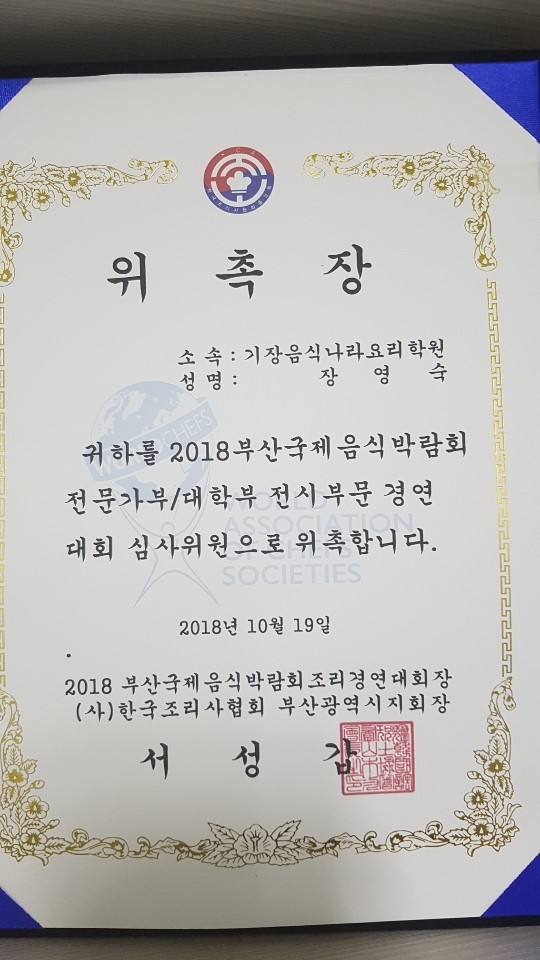 위 촉 장
소 속 : 기장음식나라요리학원
성 명 : 장 영 숙
귀하를 2018부산국제음식박람회
전문가부/대학부 전시부문 경연
대회 심사위원으로 위촉합니다.
WORLDCHEFS
WORLD
ASSOCIATION
OF CHEFS
SOCIETIES
2018년 10월 19일
2018 부산국제음식박람회조리경연대회장
(사)한국조리사협회 부산광역시지회장
서 성 갑